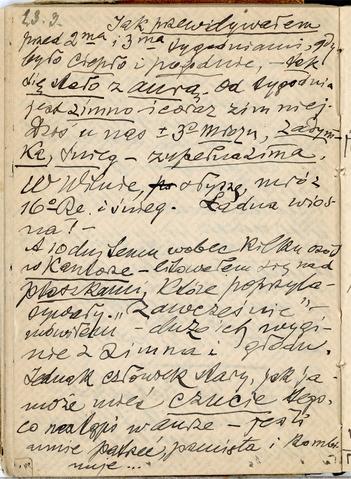 23.3. Jak przewidywałem
przed 2ma i 3ma tygodniami, gdy
było ciepło i pogodnie, – tak
się stało z aurą. Od tygodnia
jest zimno i coraz zimniej.
Dziś u nas ± 3° mrozu, zadym
ka, śnieg – zupełna zima.
W Wilnie, słyszę, mróz
16° Re. i śnieg. Ładna wios
na! –
A 10 dni temu wobec kilku osób
w Kantorze – litowałem się nad
ptaszkami, które poprzyla-
tywały. „Zawcześnie" –
mówiłem – dużo ich wygi-
nie z zimna i głodu.
Jednak człowiek stary, jak ja
może mieć czucie tego,
co nastąpi w aurze – jeśli
umie patrzeć, pamięta i kombi
nuje...